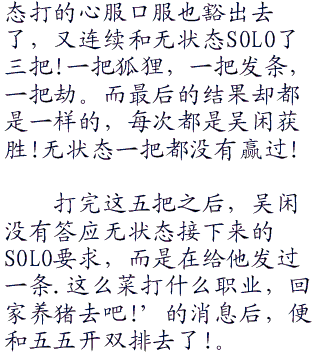 态打的心服口服也豁出去
了，又连续和无状态SOLO了
三把!一把狐狸，一把发条，
一把劫。而最后的结果却都
是一样的，每次都是吴闲获
胜!无状态一把都没有赢过!
打完这五把之后，吴闲
没有答应无状态接下来的
SOLO要求，而是在给他发过
一条.这么菜打什么职业，回
家养猪去吧!’的消息后，便
和五五开双排去了!。